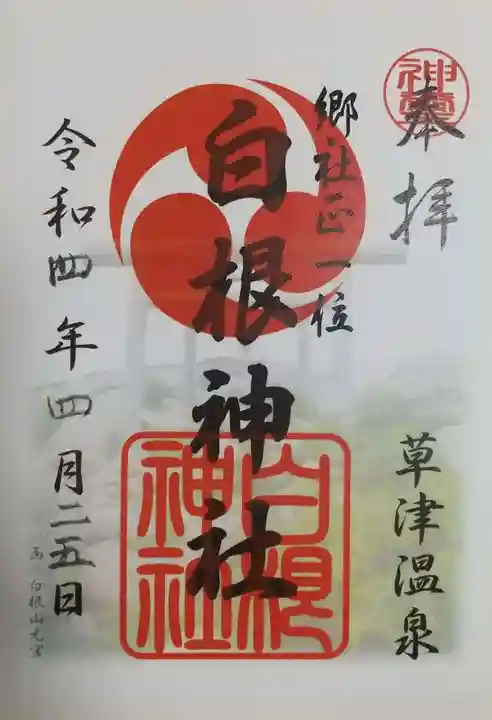 奉拝
神璽
草津温泉
郷社正一位
白根神社
白根神社
令和四年四月二五日
画 白根山元宮